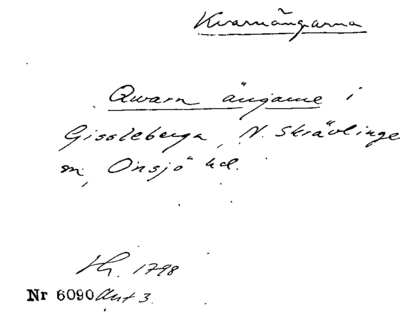 Kvarnängarna
Qwarn ängarne i
Gissleberga, N. Skrävlinge
sn, Onsjö hd.
Lh. 1798
Nr 6090 Akt 3.